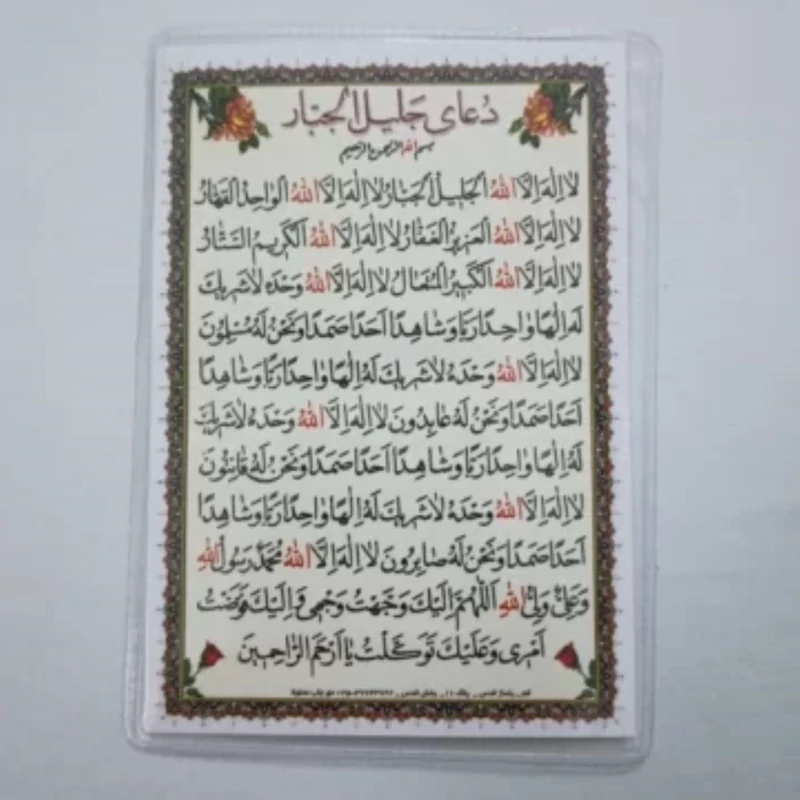 دُعای جَلیلُ الْجَبّار
بسم الله الرحمن الرحیم
لَا اِلٰهَ اِلَّا اللهُ الْجَلیلُ الْجَبّارُ لَا اِلٰهَ اِلَّا اللهُ الْواحِدُ الْقَهّارُ
لَا اِلٰهَ اِلَّا اللهُ الْعَزیزُ الْغَفّارُ لَا اِلٰهَ اِلَّا اللهُ الْكَریمُ السَّتّارُ
لَا اِلٰهَ اِلَّا اللهُ الْكَبیرُ الْمُتَعٰالُ لَا اِلٰهَ اِلَّا اللهُ وَحْدَهُ لٰا شَریكَ
لَهُ اِلٰهًا وٰاحِدًا رَبًّا وَشٰاهِدًا اَحَدًا صَمَدًا وَنَحْنُ لَهُ مُسْلِمُونَ
لَا اِلٰهَ اِلَّا اللهُ وَحْدَهُ لٰا شَریكَ لَهُ اِلٰهًا وٰاحِدًا رَبًّا وَشٰاهِدًا
اَحَدًا صَمَدًا وَنَحْنُ لَهُ عٰابِدُونَ لَا اِلٰهَ اِلَّا اللهُ وَحْدَهُ لٰا شَریكَ
لَهُ اِلٰهًا وٰاحِدًا رَبًّا وَشٰاهِدًا اَحَدًا صَمَدًا وَنَحْنُ لَهُ قٰانِتُونَ
لَا اِلٰهَ اِلَّا اللهُ وَحْدَهُ لٰا شَریكَ لَهُ اِلٰهًا وٰاحِدًا رَبًّا وَشٰاهِدًا
اَحَدًا صَمَدًا وَنَحْنُ لَهُ صٰابِرُونَ لَا اِلٰهَ اِلَّا اللهُ مُحَمَّدٌ رَسُولُ اللهِ
وَعَلِیٌّ وَلِیُّ اللهِ اَللّٰهُمَّ اِلَیْكَ وَجَّهْتُ وَجْهی وَاِلَیْكَ فَوَّضْتُ
اَمْری وَعَلَیْكَ تَوَكَّلْتُ یٰا اَرْحَمَ الرّٰاحِمینَ